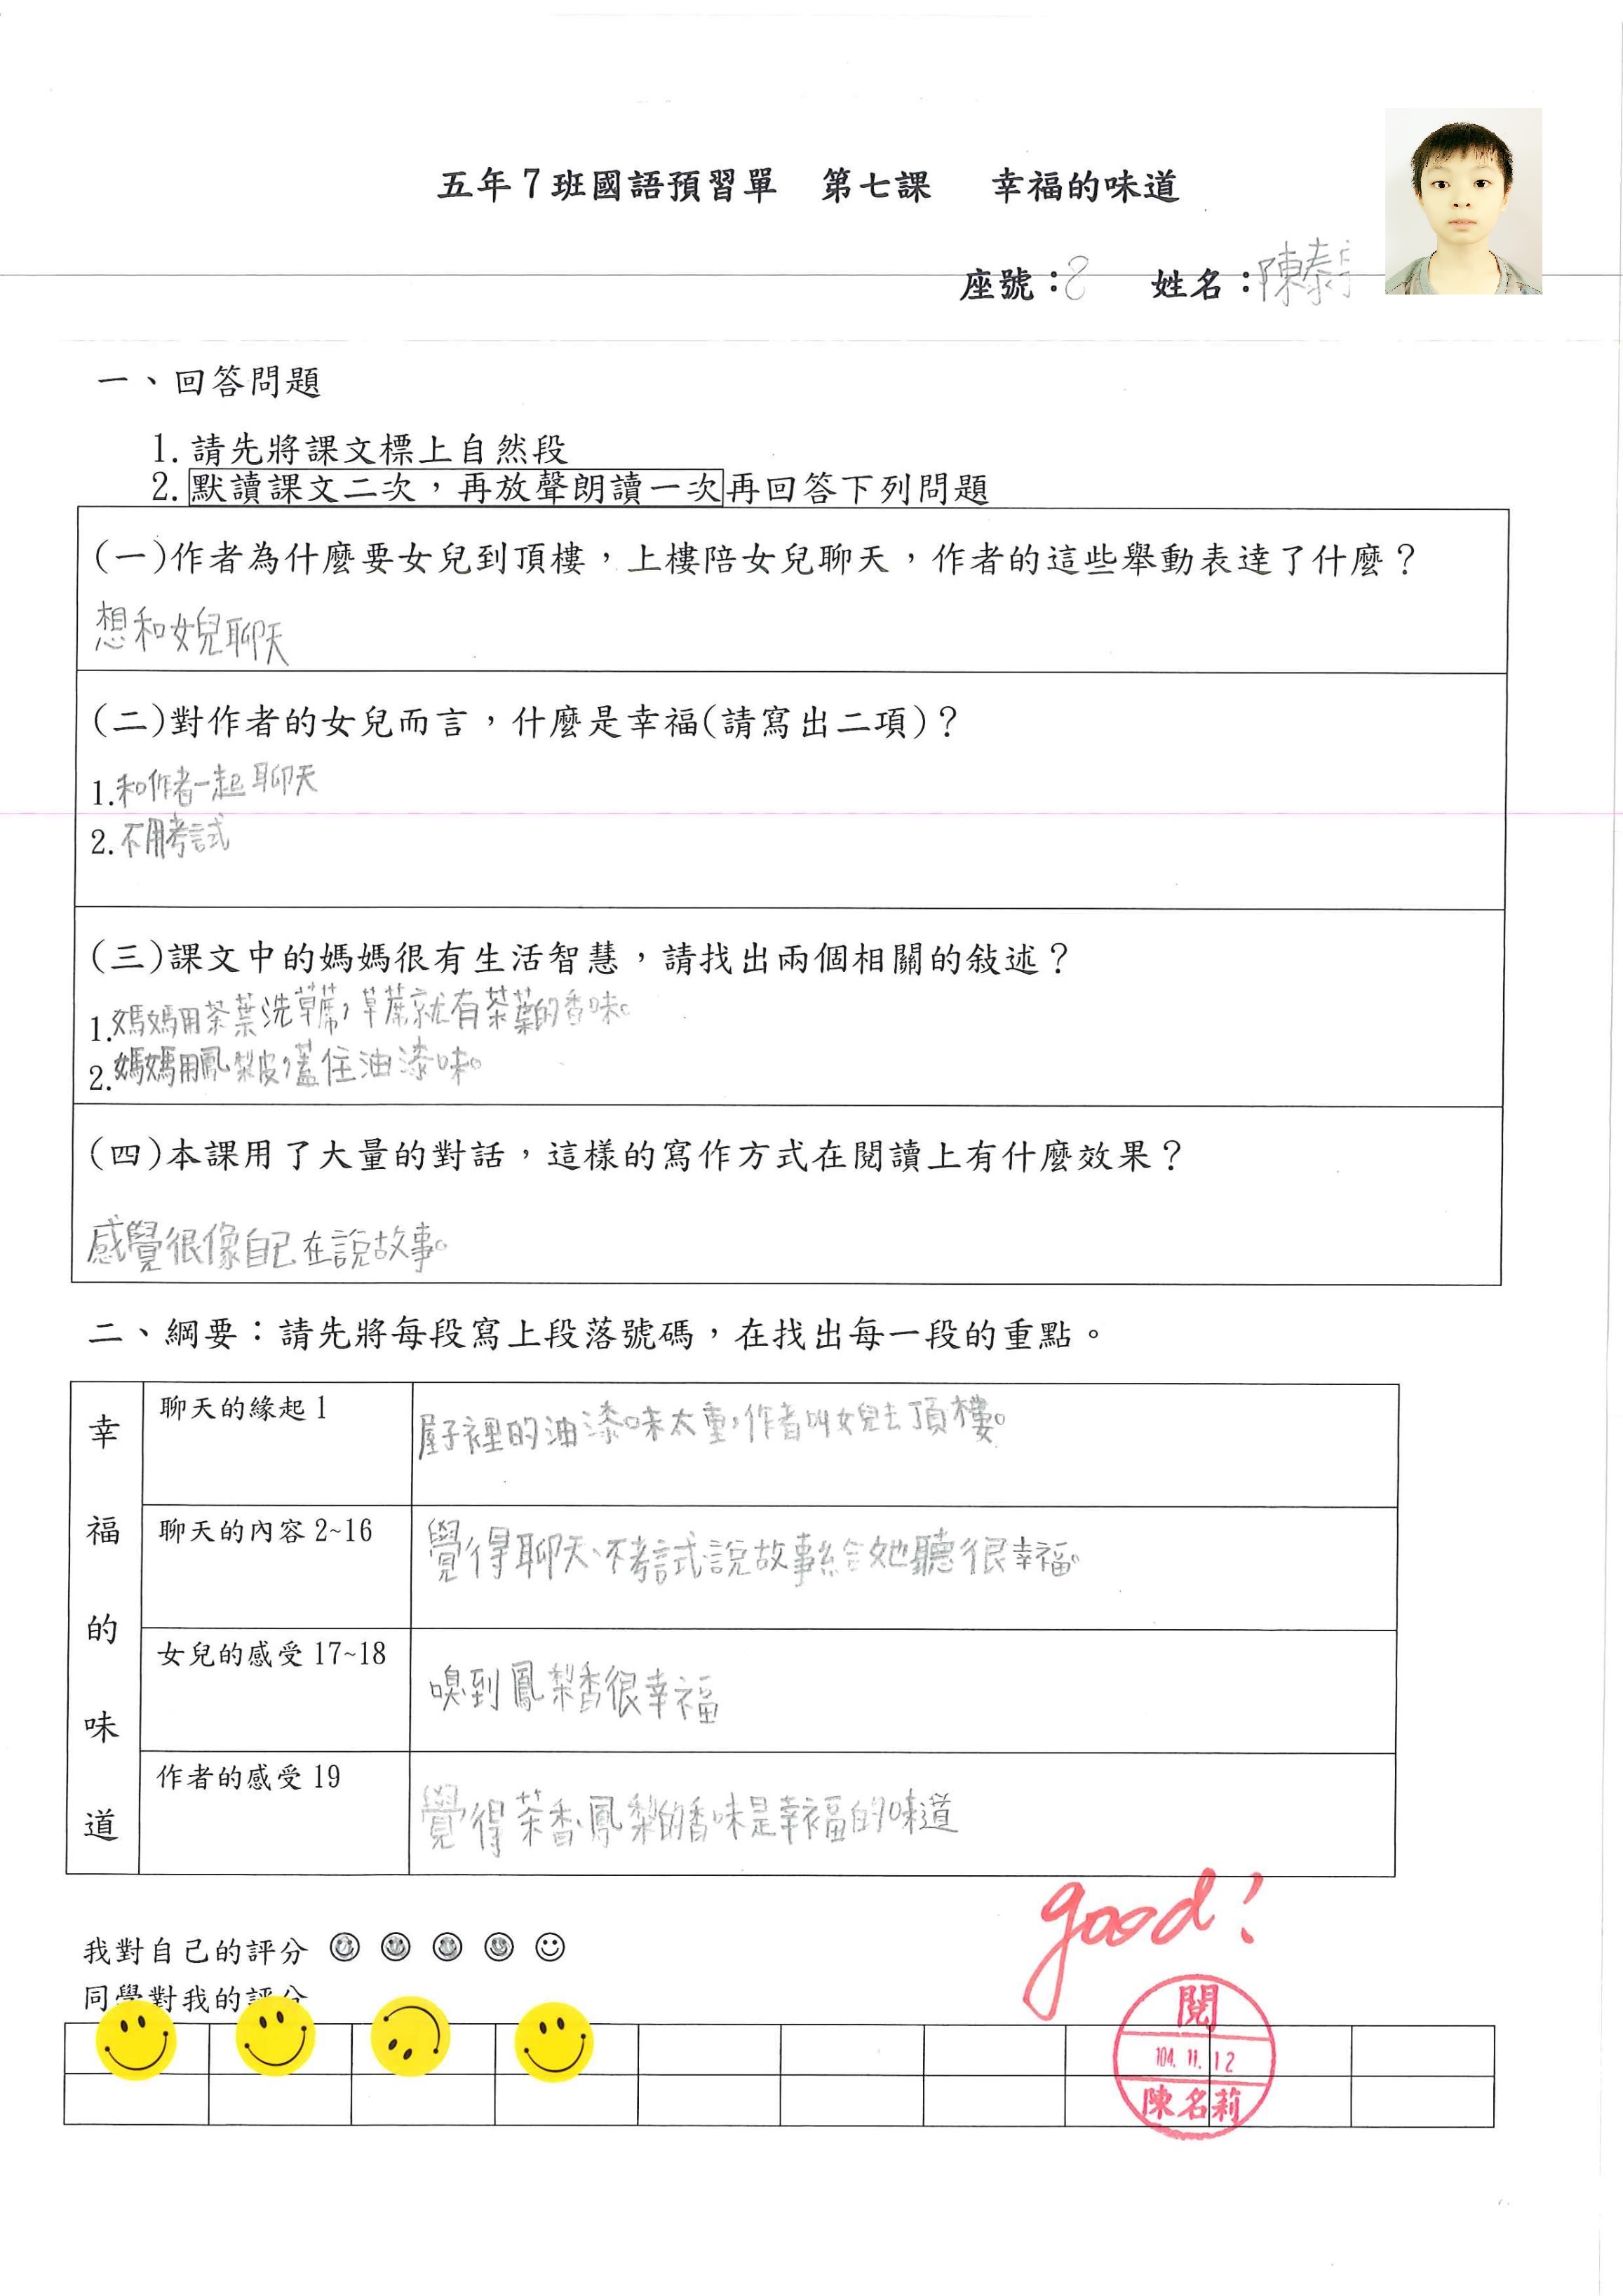 五年7班國語預習單　第七課　幸福的味道
座號：8　姓名：陳泰
一、回答問題
1. 請先將課文標上自然段
2. 默讀課文二次，再放聲朗讀一次再回答下列問題
(一)作者為什麼要女兒到頂樓，上樓陪女兒聊天，作者的這些舉動表達了什麼？
想和女兒聊天
(二)對作者的女兒而言，什麼是幸福(請寫出二項)？
1.和作者一起聊天
2.不用考試
(三)課文中的媽媽很有生活智慧，請找出兩個相關的敍述？
1.媽媽用茶葉洗草蓆，草蓆就有茶葉的香味。
2.媽媽用鳳梨皮，蓋住油漆味。
(四)本課用了大量的對話，這樣的寫作方式在閱讀上有什麼效果？
感覺很像自己在說故事。
二、綱要：請先將每段寫上段落號碼，在找出每一段的重點。
幸福的味道
聊天的緣起1
屋子裡的油漆味太重，作者叫女兒去頂樓。
聊天的內容2~16
覺得聊天、不考試、說故事給她聽很幸福。
女兒的感受17~18
嗅到鳳梨香很幸福
作者的感受19
覺得茶香、鳳梨的香味是幸福的味道
good!
我對自己的評分
同學對我的評分
閱
104.11.12
陳名莉